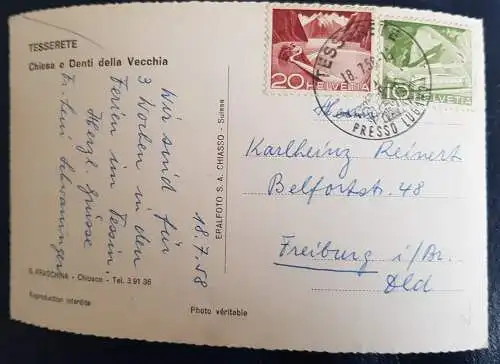 TESSERETE
Chiesa e Denti della Vecchia
Wir sind für
3 Wochen in den
Ferien im Tessin.
Herzl. Grüsse
Fr. Leni Schwaninger
18.7.58
G. ARASCHINA - Chiasso - Tel. 3 91 36
Reproduction interdite
Photo véritable
ERALFOTO S. A. CHIASSO - Suisse
20 HELVETIA
10 HELVETIA
18.7.58
PRESSO LUGANO
Karlheinz Reinert
Belfortstr. 48
Freiburg i/Br.
Dld